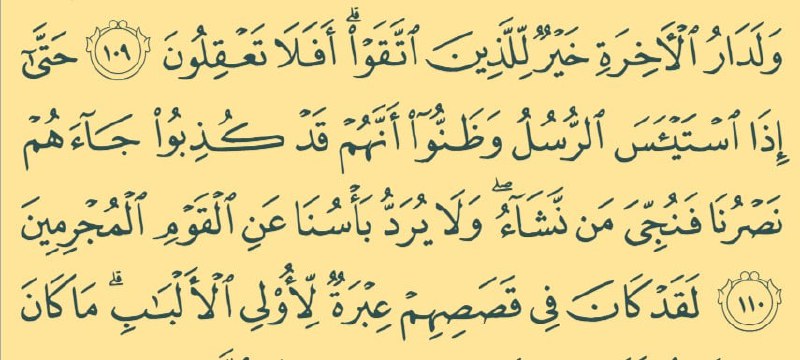 وَلَدَارُ ٱلْأَخِرَةِ خَيْرٌ لِّلَّذِينَ ٱتَّقَوْا۟ ۗ أَفَلَا تَعْقِلُونَ ١٠٩ حَتَّىٰٓ
إِذَا ٱسْتَيْـَٔسَ ٱلرُّسُلُ وَظَنُّوٓا۟ أَنَّهُمْ قَدْ كُذِبُوا۟ جَآءَهُمْ
نَصْرُنَا فَنُجِّىَ مَن نَّشَآءُ ۖ وَلَا يُرَدُّ بَأْسُنَا عَنِ ٱلْقَوْمِ ٱلْمُجْرِمِينَ
١١٠ لَقَدْ كَانَ فِى قَصَصِهِمْ عِبْرَةٌ لِّأُو۟لِى ٱلْأَلْبَٰبِ ۗ مَا كَانَ